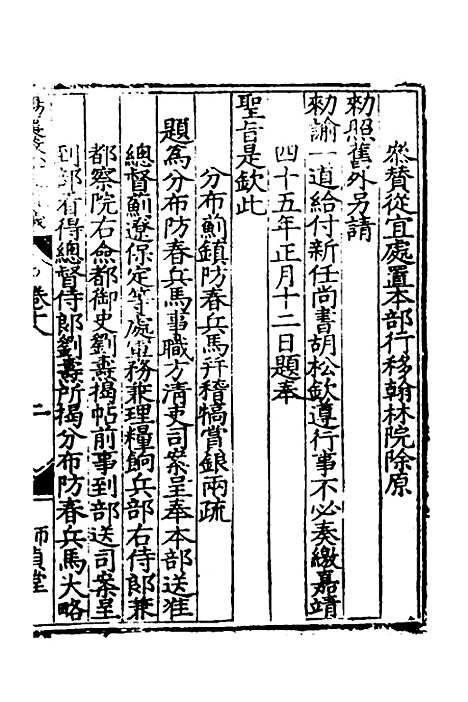 叅替從宜處置本部行移翰林院除原
勑照舊外另請
勑諭一道給付新任尚書胡松欽遵行事不必奏繳嘉靖
四十五年正月十二日題奉
聖旨是欽此
分布薊鎮防春兵馬并稽犒賞銀兩疏
題為分布防春兵馬事職方清吏司案呈奉本部送准
總督薊遼保定等處軍務兼理糧餉兵部右侍郎兼
都察院右僉都御史劉燾揭帖前事到部送司案呈
到部看得總督侍郎劉燾所揭分布防春兵馬大略
卷六 二 師貞堂